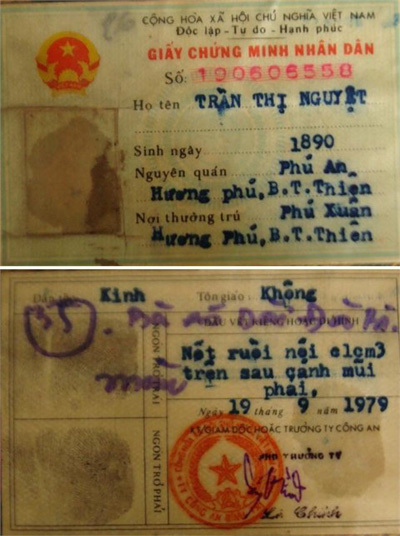 CỘNG HÒA XÃ HỘI CHỦ NGHĨA VIỆT NAM
Độc lập - Tự do - Hạnh phúc
GIẤY CHỨNG MINH NHÂN DÂN
Số: 190606558
Họ tên TRẦN THỊ NGUYỆT
Sinh ngày 1890
Nguyên quán Phú An
Hương phú, B.T.Thiên
Nơi thường trú Phú Xuân
Hương Phú, B.T.Thiên
Dân tộc Kinh Tôn giáo Không
35
DẤU VẾT RIÊNG HOẶC DỊ HÌNH
NGÓN TRỎ TRÁI
Nốt ruồi nổi c1cm3
trên sau cánh mũi
phải.
Ngày 19 tháng 9 năm 1979
KT GIÁM ĐỐC HOẶC TRƯỞNG TY CÔNG AN
NGÓN TRỎ PHẢI
PHÓ TRƯỞNG TY